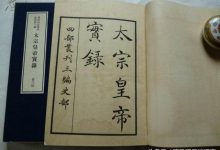 太宗皇帝
實錄
四部叢刊三編史部
太宗皇帝實錄